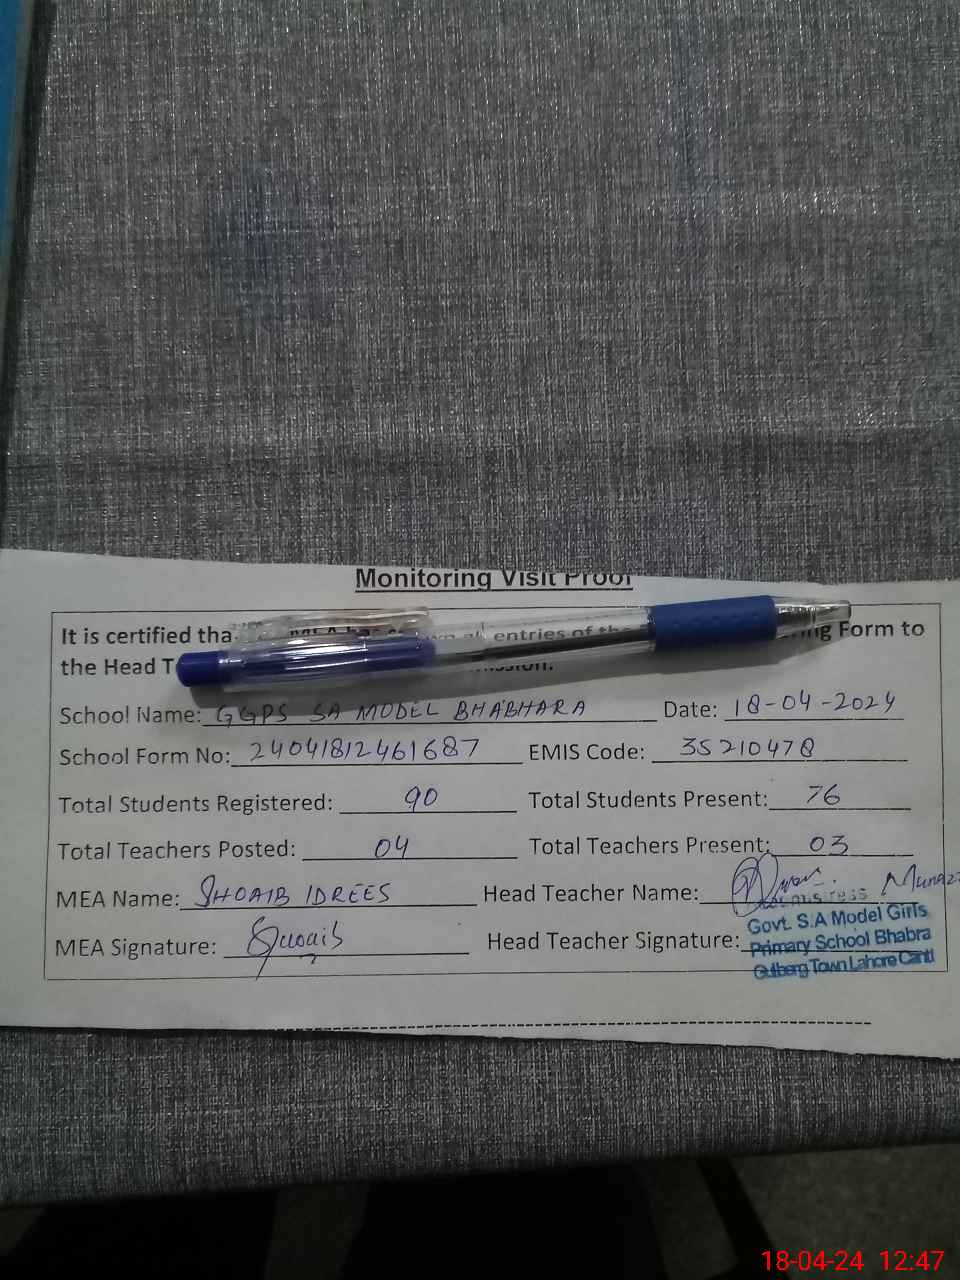 Monitoring Visit Proof
It is certified entries of Form to
the Head
School Name: GGPS SA MODEL BHABHARA Date: 18-04-2024
School Form No: 24041812461687 EMIS Code: 35210478
Total Students Registered: 90 Total Students Present: 76
Total Teachers Posted: 04 Total Teachers Present: 03
MEA Name: SHOAIB IDREES Head Teacher Name:
MEA Signature: Shoaib Head Teacher Signature:
Govt. S.A Model Girls
Primary School Bhabra
Gulberg Town Lahore Cantt
18-04-24 12:47